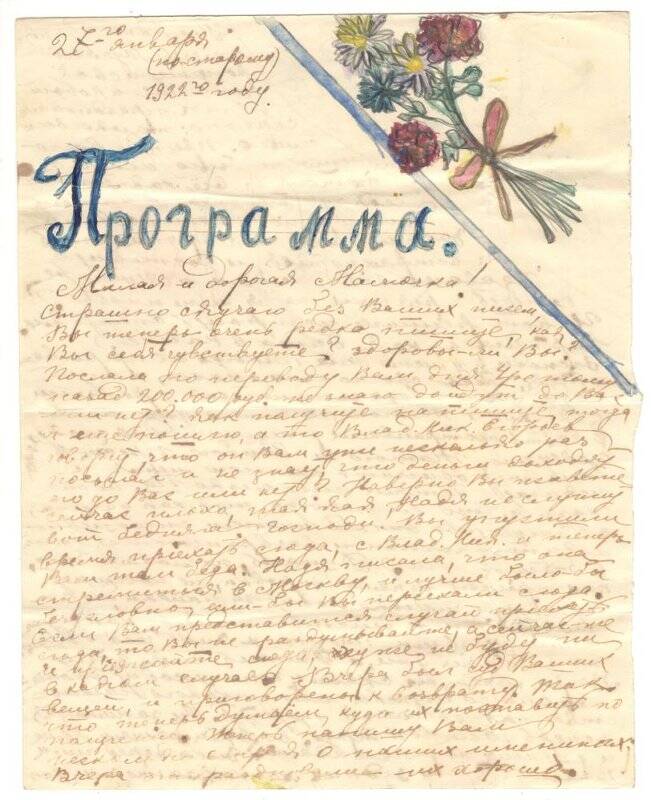 27-го января
(по старому)
1922го году.
Программа.
Милая и дорогая Мамочка!
страшно скучаю без Ваших писем,
Вы теперь очень редко пишите, как
Вы себя чувствуете? здоровы-ли Вы?
Послала по переводу Вам дня три тому
назад 200.000 руб. не знаю дойдут до Вас
или нет? Как получите напишите, тогда
я еще пошлю, а то Влад. Ник. Егорьев
говорит что он Вам уже несколько раз
посылал и не знает, что деньги доходят
его до Вас или нет? Наверно Вы живете
сейчас плохо, Надя не служит
вот бедняга! Господи. Вы упустили
время приехать сюда, с Влад. Ник. и теперь
Вам там беда. Надя писала, что она
стремиться в Москву, и лучше было-бы
безусловно, если-бы Вы переехали сюда.
Если Вам представится случай приехать
сюда, то Вы не раздумывайте, а сейчас-же
и приезжайте сюда, хуже не будет ни
в каком случае. Вчера был суд Ваших
вещей, и приговорены к возврату. Так
что теперь думаем, куда их поставить по
получении. Теперь напишу Вам
о наших именинах.
Вчера праздновали их хорошо.